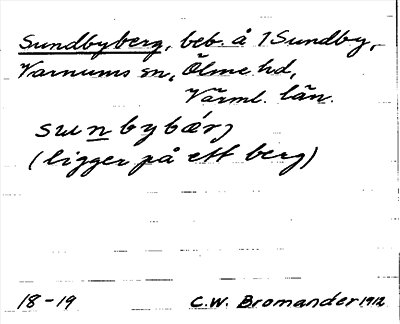 Sundbyberg, beb. å 1 Sundby,
Varnums sn, Ölme hd,
Värml. län.
sunbybærj
(ligger på ett berg)
18-19 C.W. Bromander 1912